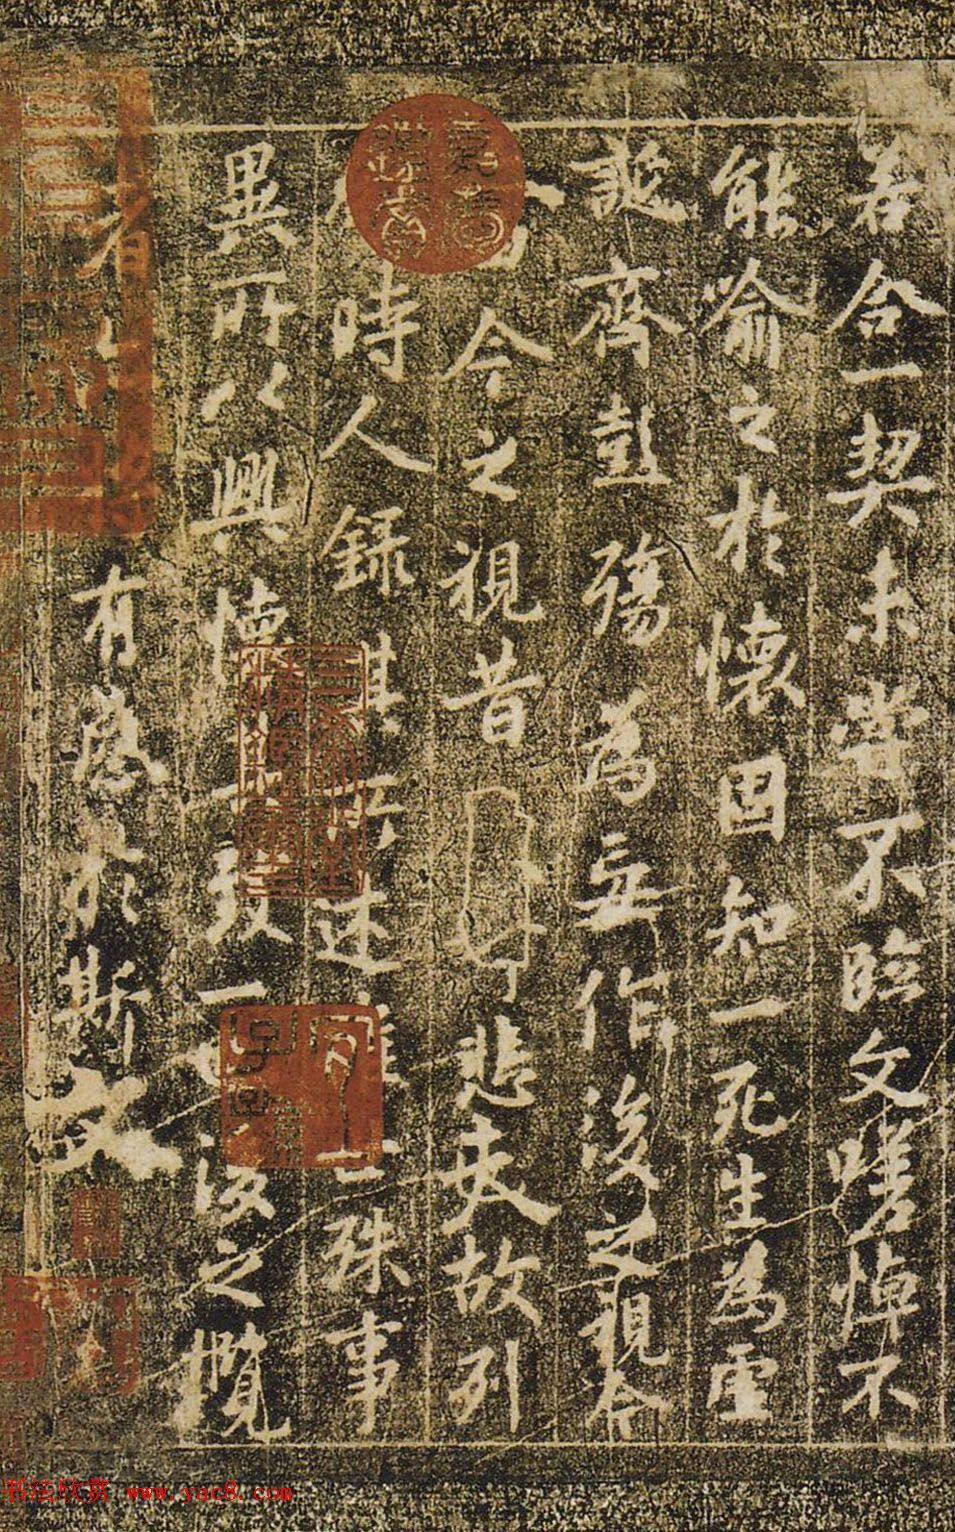 若合一契未嘗不臨文嗟悼不
能喻之於懷固知一死生為虛
誕齊彭殤為妄作後之視今
今之視昔悲夫故列
時人錄其所述雖世殊事
異所以興懷其致一也後之攬
者有感於斯文
书法欣赏 www.yac8.com